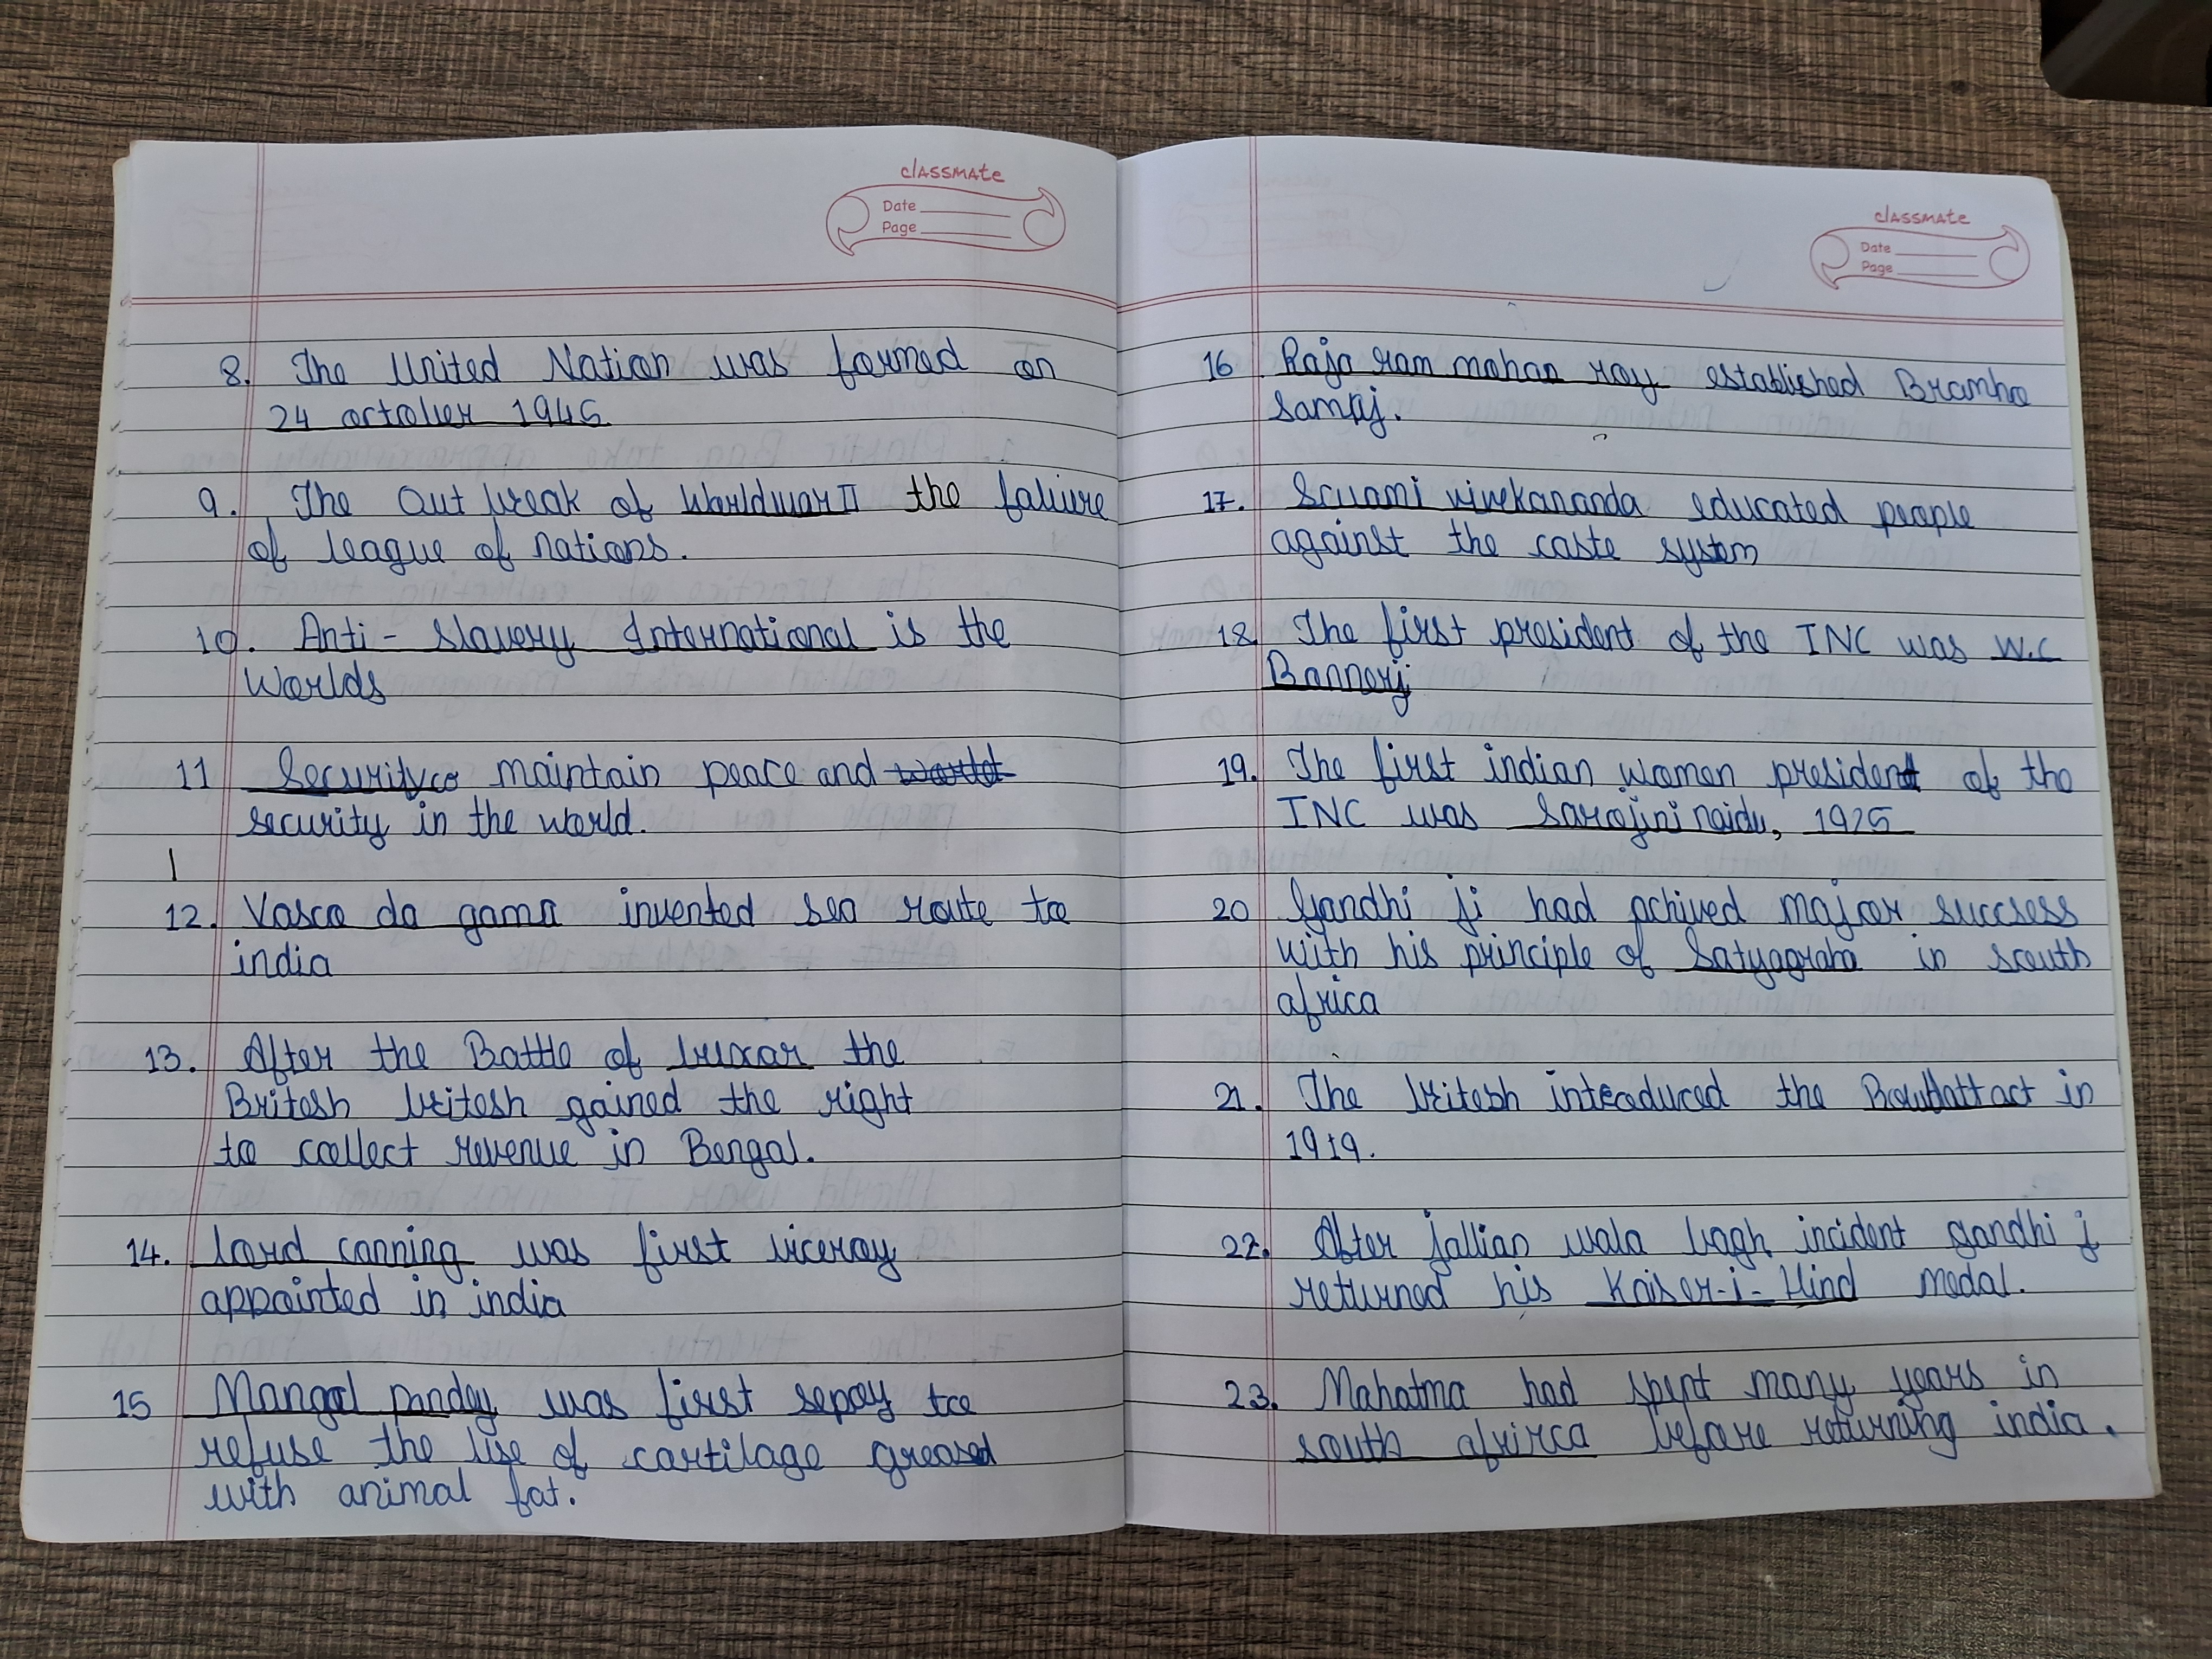 classmate
Date
Page
8. The United Nation was formed on
24 october 1945
9. The Out break of Worldwar II the faliure
of league of nations.
10. Anti - slavery International is the
Worlds
11 Securityco maintain peace and world
security in the world.
12. Vasco da gama invented sea route to
india
13. After the Battle of buxar the
Britesh britesh gained the right
to collect revenue in Bengal.
14. lord canning was first viceroy
appointed in india
15 Mangal pandey was first sepoy to
refuse the use of cartilage greased
with animal fat.
classmate
Date
Page
16 Raja ram mohan roy established Bramho
samaj.
17. Swami vivekananda educated people
against the caste system
18. The first president of the INC was W.C
Bannerj
19. The first indian women president of the
INC was Sarojini naidu, 1925
20 Gandhi ji had achived major succsess
with his principle of Satyagraha in south
africa
21. The britesh introduced the Rowlattact in
1919.
22. After jallian wala bagh incident gandhi j
returned his Kaiser-i-Hind medal.
23. Mahatma had spent many years in
south afrirca before returning india.